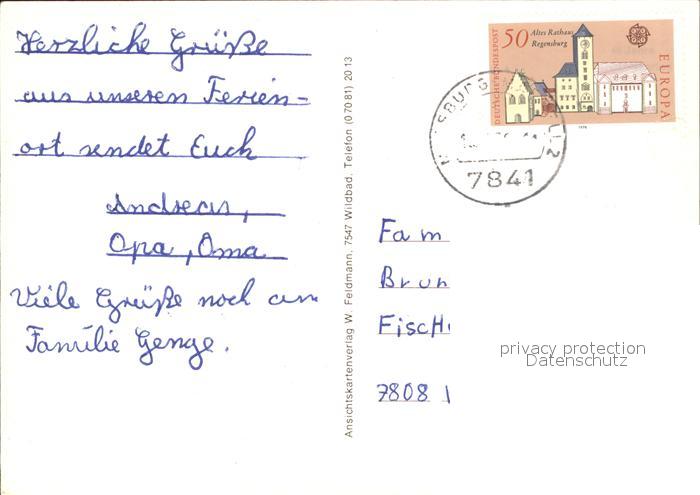 Herzliche Grüße
aus unseren Ferien-
ort sendet Euch
Andreas,
Opa, Oma
Viele Grüße noch an
Familie Genge.
Ansichtskartenverlag W. Feldmann, 7547 Wildbad, Telefon (0 70 81) 20 13
DEUTSCHE BUNDESPOST
50
Altes Rathaus
Regensburg
EUROPA
1978
7841
Fam
Brun
Fisch
7808
privacy protection
Datenschutz